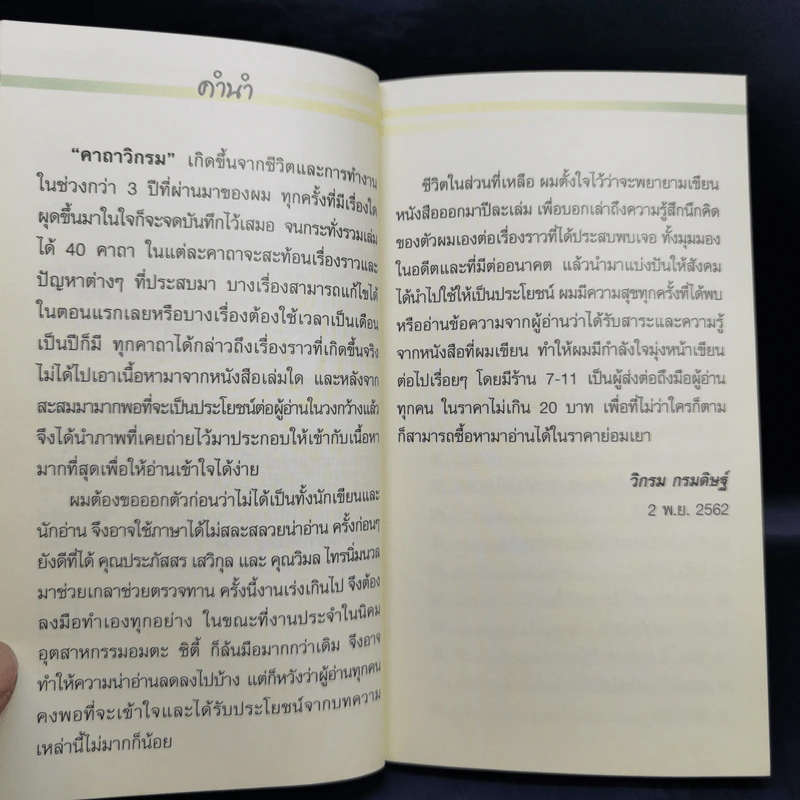 คำนำ
“คาถาวิกรม” เกิดขึ้นจากชีวิตและการทำงาน
ในช่วงกว่า 3 ปีที่ผ่านมาของผม ทุกครั้งที่มีเรื่องใด
ผุดขึ้นมาในใจก็จะจดบันทึกไว้เสมอ จนกระทั่งรวมเล่ม
ได้ 40 คาถา ในแต่ละคาถาจะสะท้อนเรื่องราวและ
ปัญหาต่างๆ ที่ประสบมา บางเรื่องสามารถแก้ไขได้
ในตอนแรกเลยหรือบางเรื่องต้องใช้เวลาเป็นเดือน
เป็นปีก็มี ทุกคาถาได้กล่าวถึงเรื่องราวที่เกิดขึ้นจริง
ไม่ได้ไปเอาเนื้อหามาจากหนังสือเล่มใด และหลังจาก
สะสมมามากพอที่จะเป็นประโยชน์ต่อผู้อ่านในวงกว้างแล้ว
จึงได้นำภาพที่เคยถ่ายไว้มาประกอบให้เข้ากับเนื้อหา
มากที่สุดเพื่อให้อ่านเข้าใจได้ง่าย
ผมต้องขอออกตัวก่อนว่าไม่ได้เป็นทั้งนักเขียนและ
นักอ่าน จึงอาจใช้ภาษาได้ไม่สละสลวยน่าอ่าน ครั้งก่อนๆ
ยังดีที่ได้ คุณประภัสสร เสวิกุล และ คุณวิมล ไทรนิ่มนวล
มาช่วยเกลาช่วยตรวจทาน ครั้งนี้งานเร่งเกินไป จึงต้อง
ลงมือทำเองทุกอย่าง ในขณะที่งานประจำในนิคม
อุตสาหกรรมอมตะ ซิตี้ ก็ล้นมือมากกว่าเดิม จึงอาจ
ทำให้ความน่าอ่านลดลงไปบ้าง แต่ก็หวังว่าผู้อ่านทุกคน
คงพอที่จะเข้าใจและได้รับประโยชน์จากบทความ
เหล่านี้ไม่มากก็น้อย
ชีวิตในส่วนที่เหลือ ผมตั้งใจไว้ว่าจะพยายามเขียน
หนังสือออกมาปีละเล่ม เพื่อบอกเล่าถึงความรู้สึกนึกคิด
ของตัวผมเองต่อเรื่องราวที่ได้ประสบพบเจอ ทั้งมุมมอง
ในอดีตและที่มีต่ออนาคต แล้วนำมาแบ่งปันให้สังคม
ได้นำไปใช้ให้เป็นประโยชน์ ผมมีความสุขทุกครั้งที่ได้พบ
หรืออ่านข้อความจากผู้อ่านว่าได้รับสาระและความรู้
จากหนังสือที่ผมเขียน ทำให้ผมมีกำลังใจมุ่งหน้าเขียน
ต่อไปเรื่อยๆ โดยมีร้าน 7-11 เป็นผู้ส่งต่อถึงมือผู้อ่าน
ทุกคน ในราคาไม่เกิน 20 บาท เพื่อที่ไม่ว่าใครก็ตาม
ก็สามารถซื้อหามาอ่านได้ในราคาย่อมเยา
วิกรม กรมดิษฐ์
2 พ.ย. 2562